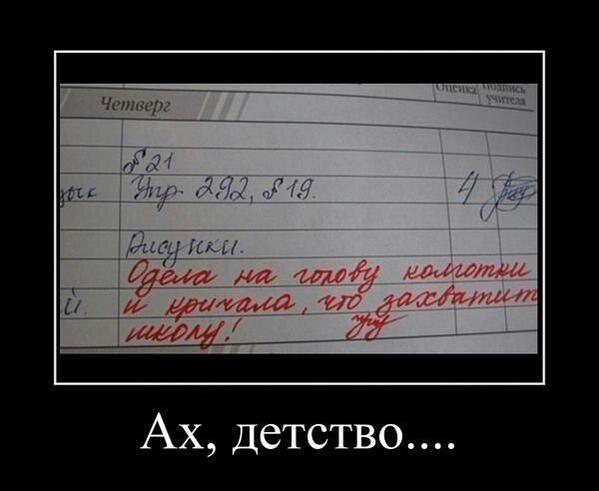 Оценка Подпись
учителя
Четверг
§21
зык Упр. 292, §19. 4
Рисунки.
Одела на голову колготки
й. и кричала, что захватит
школу!
Ах, детство....